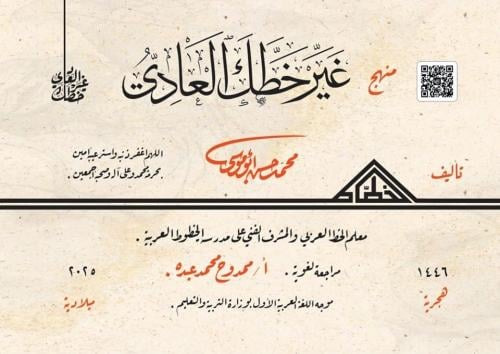 منهج
غَيِّرْ خَطَّكَ الْعَادِيَّ
غير خطك العادي
تأليف
محمد حسن أبو موسى
اللهم اغفر ذنبه واستر عيبه آمين
بحرمة محمد وعلى آله وصحبه أجمعين .
الخطاط
معلم الخط العربي والمشرف الفني على مدرسة الخطوط العربية .
١٤٤٦
هجرية
مراجعة لغوية . أ/ ممدوح محمد عبده .
٢٠٢٥
ميلادية
موجه اللغة العربية الأول بوزارة التربية والتعليم .